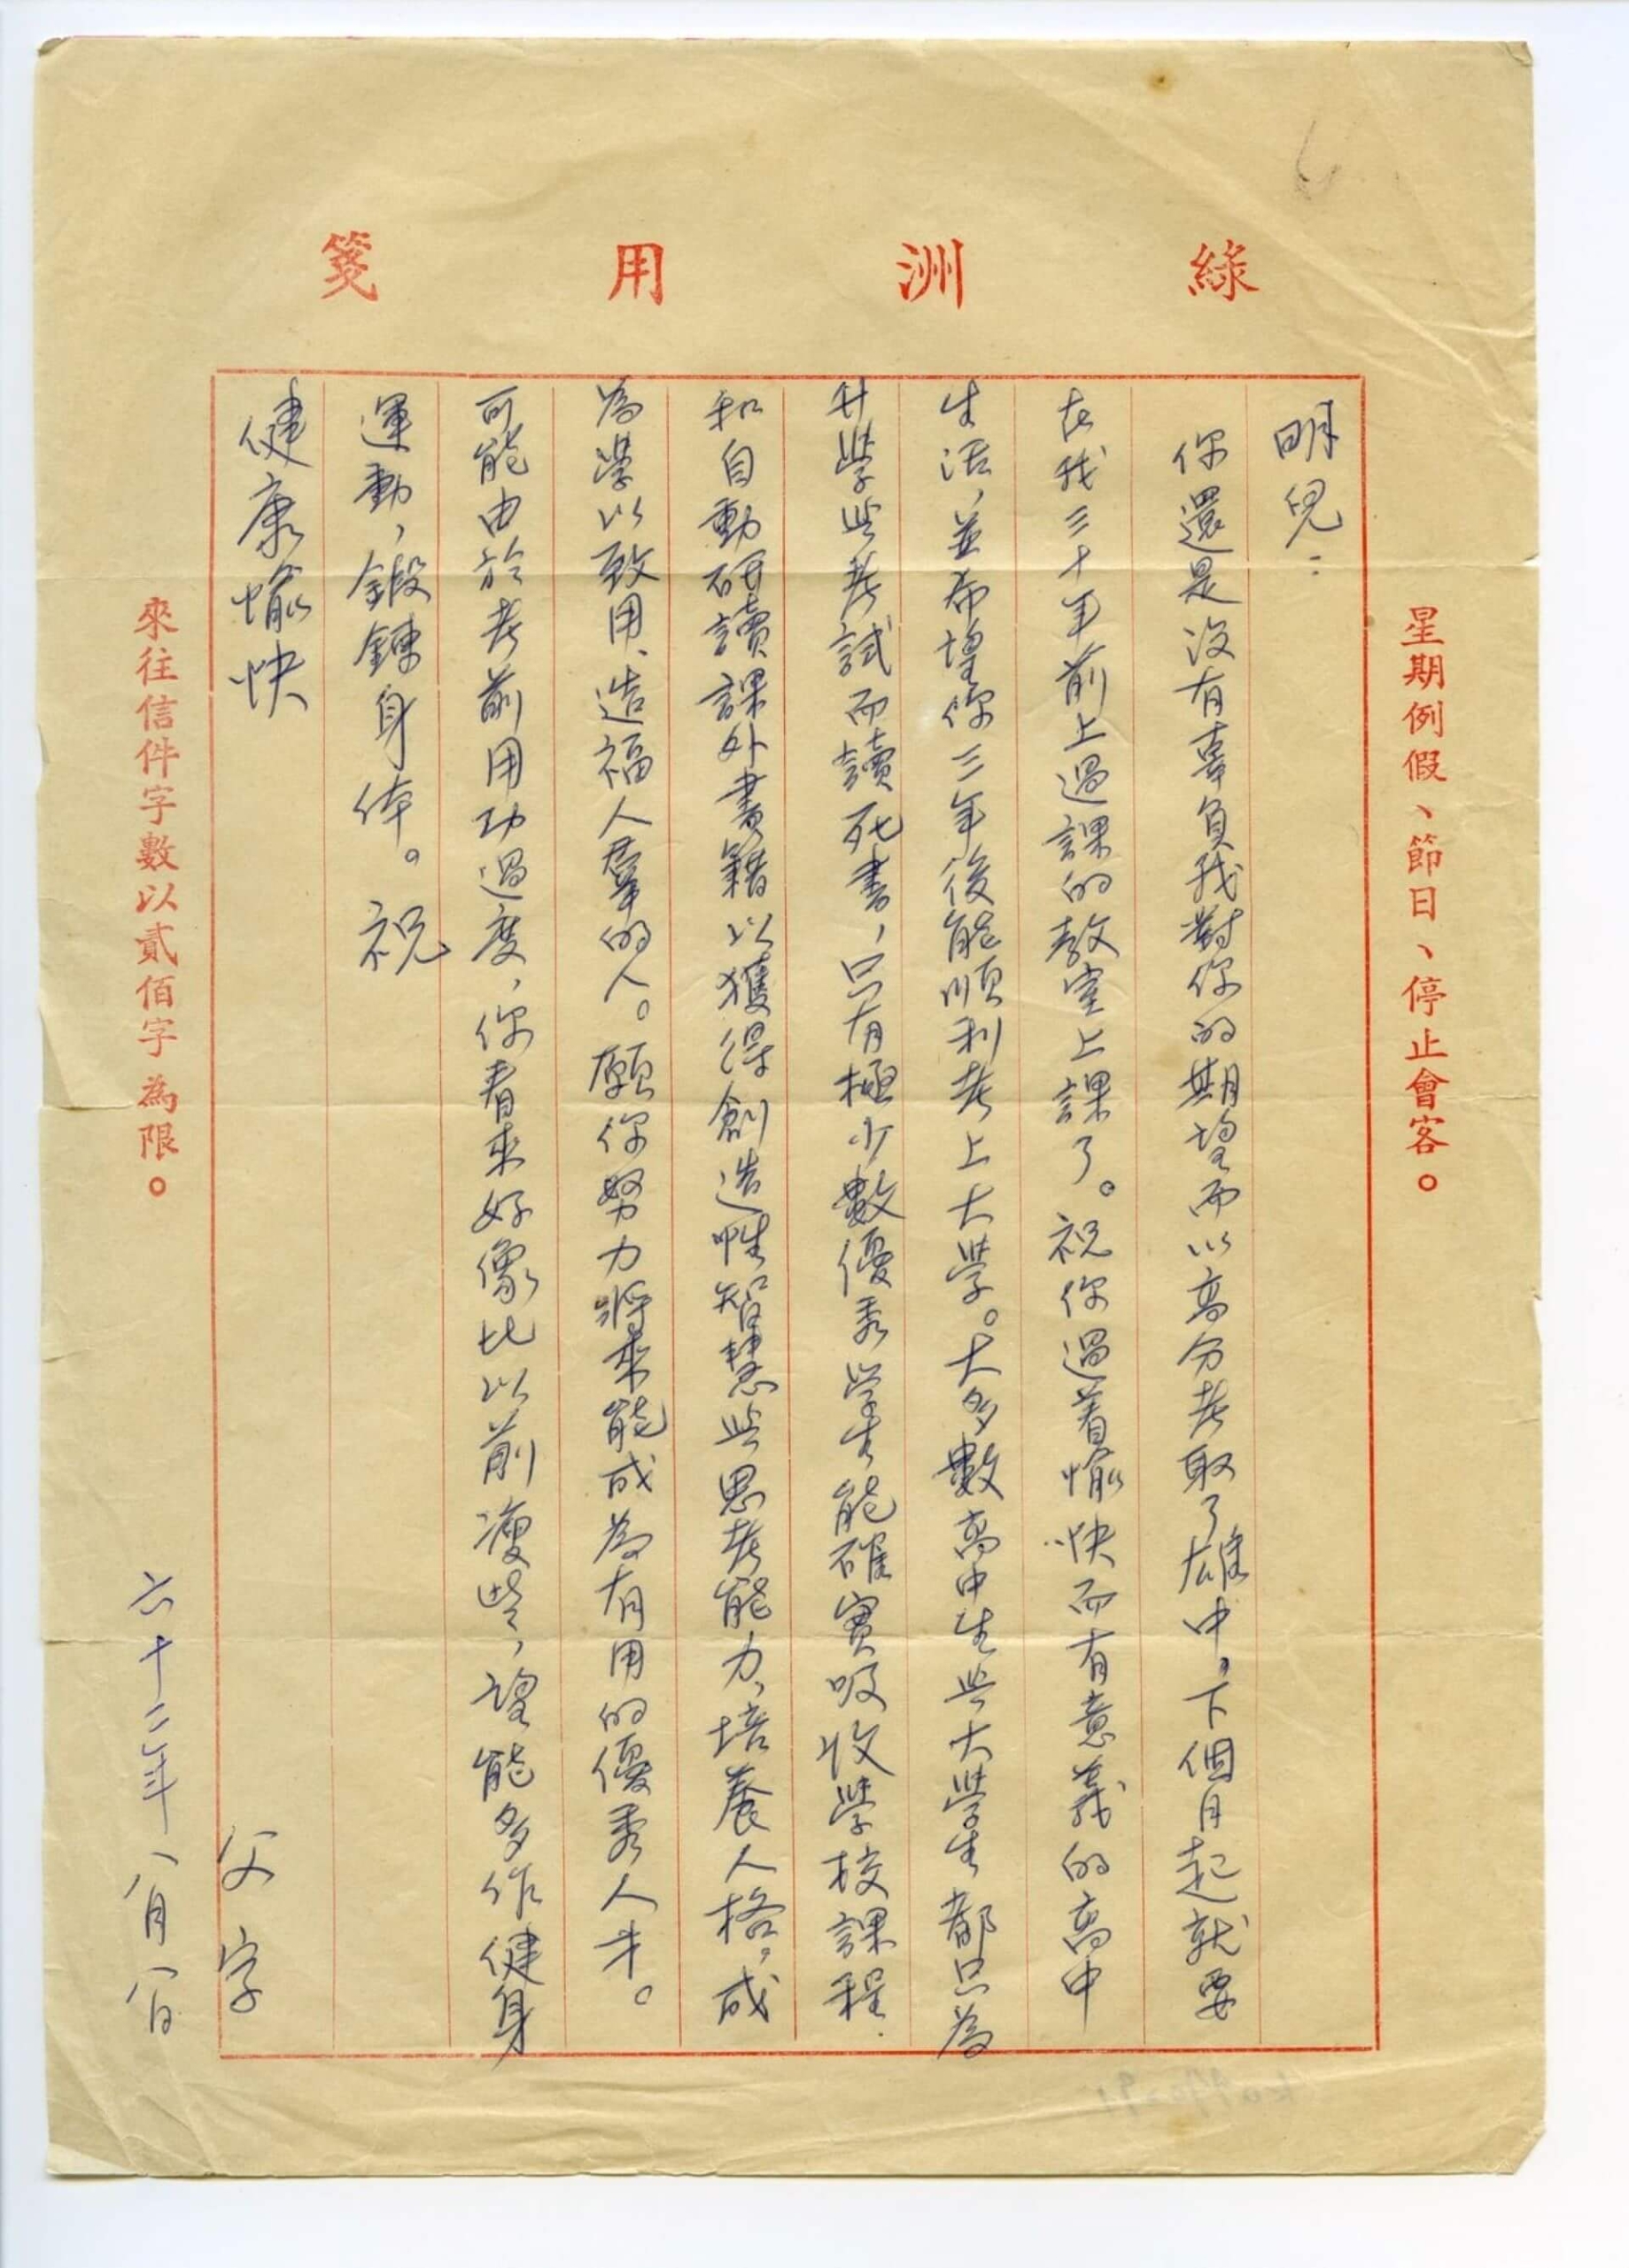 綠洲用箋
星期例假、節日、停止會客。
明兒：
你還是沒有辜負我對你的期望而以高分考取了雄中。下個月起就要
在我三十年前上過課的教室上課了。祝你過着愉快而有意義的高中
生活，並希望你三年後能順利考上大學。大多數高中生與大學生都只為
升學與考試而讀死書，只有極少數優秀學生能確實吸收學校課程
和自動研讀課外書籍以獲得創造性智慧與思考能力，培養人格，成
為學以致用、造福人羣的人。願你努力將來能成為有用的優秀人才。
可能由於考前用功過度，你看來好像比以前瘦些，望能多作健身
運動，鍛鍊身体。祝
健康愉快
父字
六十二年八月八日
來往信件字數以貳佰字為限。